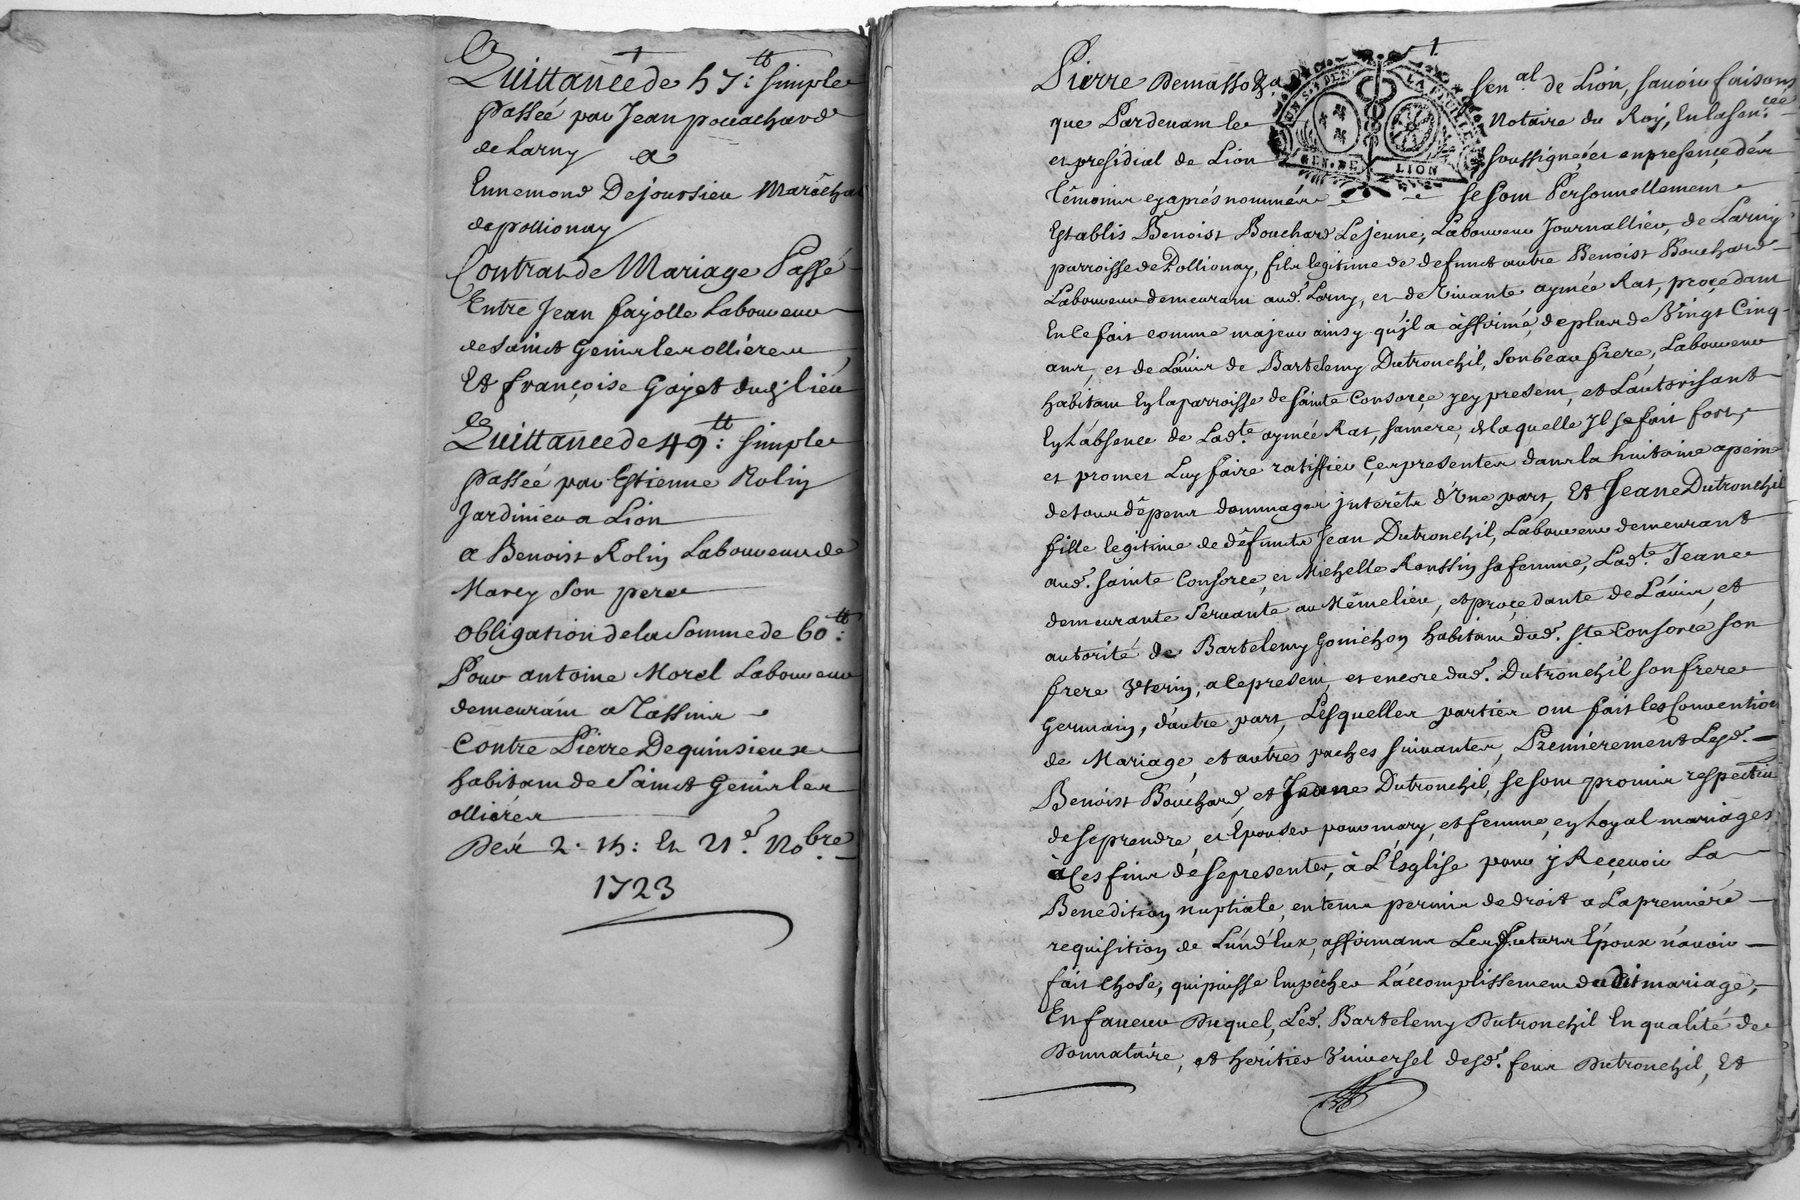 Quittance de 57:tt simple
passée par Jean pouachard
de Larny
a
Ennemond Dejoussieu Maréchal
de pollionay
Contrat de Mariage Passé
Entre Jean fayolle Laboureur
de Sainct Genis les ollières
Et françoise Gayet dud. lieu
Quittance de 49:tt simple
passée par Estienne Rolin
Jardinier a Lion
a Benoist Rolin Laboureur de
Marcy Son pere
Obligation de la Somme de 60:tt
Pour antoine Morel Laboureur
demeurant a Tassins
Contre Pierre Dequinsieux
habitant de Sainct Genis les
ollières
Des 2. 15: Et 21e. Nobre
1723
Pierre Demasso &a. Senal. de Lion, savoir faisons
que Pardevant le Notaire du Roy, En la sen.cee
et presidial de Lion soussigné, et en presence des
GEN. DE LION
témoins cy aprés nommés se sont Personnellement
Establis Benoist Bouchard Lejeune, Laboureur Journallier, de Larny
parroisse de Pollionay, fils legitime de deffunct autre Benoist Bouchard
Laboureur demeurant aud. Larny, et de Vivante aymée Rat, proçedant
En ce fait comme majeur ainsy qu'jl a affirmé, de plus de Vingt Cinq
ans, et de L'avis de Bartelemy Dutronchil, son beau frere, Laboureur
habitant En la parroisse de Sainte Consorçe jcy present, et L'autorisant
En L'absence de Ladte. aymée Rat, sa mere, de laquelle Jl se fait fort,
et promet Luy faire ratiffier Ces presentes dans la huitaine a peine
de tous dépens dommages jnterêts d'Une part, Et Jeane Dutronchil
fille legitime de défunts Jean Dutronchil, Laboureur demeurant
aud. Sainte Consorçe, et Michelle Ronssin sa femme, Ladte. Jeane
demeurante Servante au Même lieu, et proçedante de L'avis, et
autorité de Bartelemy Gonichon habitant dud. Ste Consorçe son
frere Vterin, a Ce present, et encore dud. Dutronchil son frere
Germain, d'autre part, Lesquelles parties ont fait les Convention
de Mariage, et autres paches suivantes, Premierement Led.
Benoist Bouchard, et Jeane Dutronchil, se sont promis respectiv
de se prendre, et Epouser pour mary, et femme, en Loyal mariage
à Ces fins de se presenter, à L'Esglise pour y Reçevoir La
Benedition nuptiale, en tems permis de droit a La premiere
requisition de L'un d'Eux, affirmans Lesd. futurs Époux n'avoir
fait Chose, qui puisse Empêcher L'accomplissement dudit mariage,
En faveur Duquel, Led. Bartelemy Dutronchil En qualité de
Donnataire, et heritier Vniversel desd. feus Dutronchil, Et